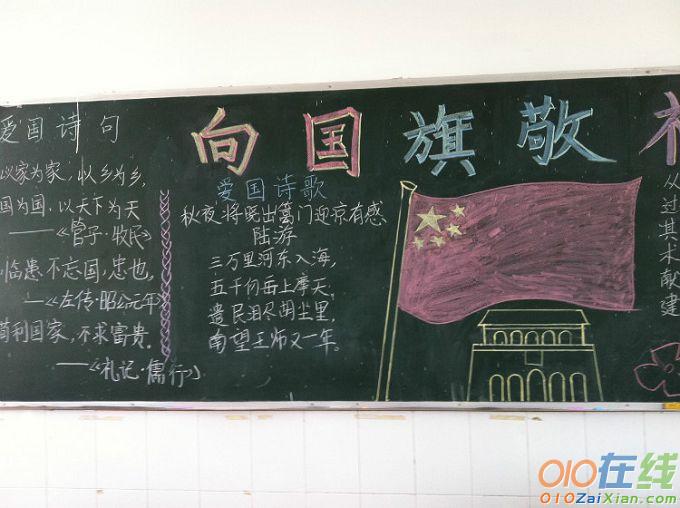 爱国诗句
以家为家，以乡为乡，
国为国，以天下为天
——《管子·牧民》
临患不忘国，忠也。
——《左传·昭公元年》
苟利国家，不求富贵。
——《礼记·儒行》
向国旗敬礼
爱国诗歌
秋夜将晓出篱门迎凉有感
陆游
三万里河东入海，
五千仞岳上摩天。
遗民泪尽胡尘里，
南望王师又一年。
从
过
其
术
献
建
010在线
010ZaiXian.com